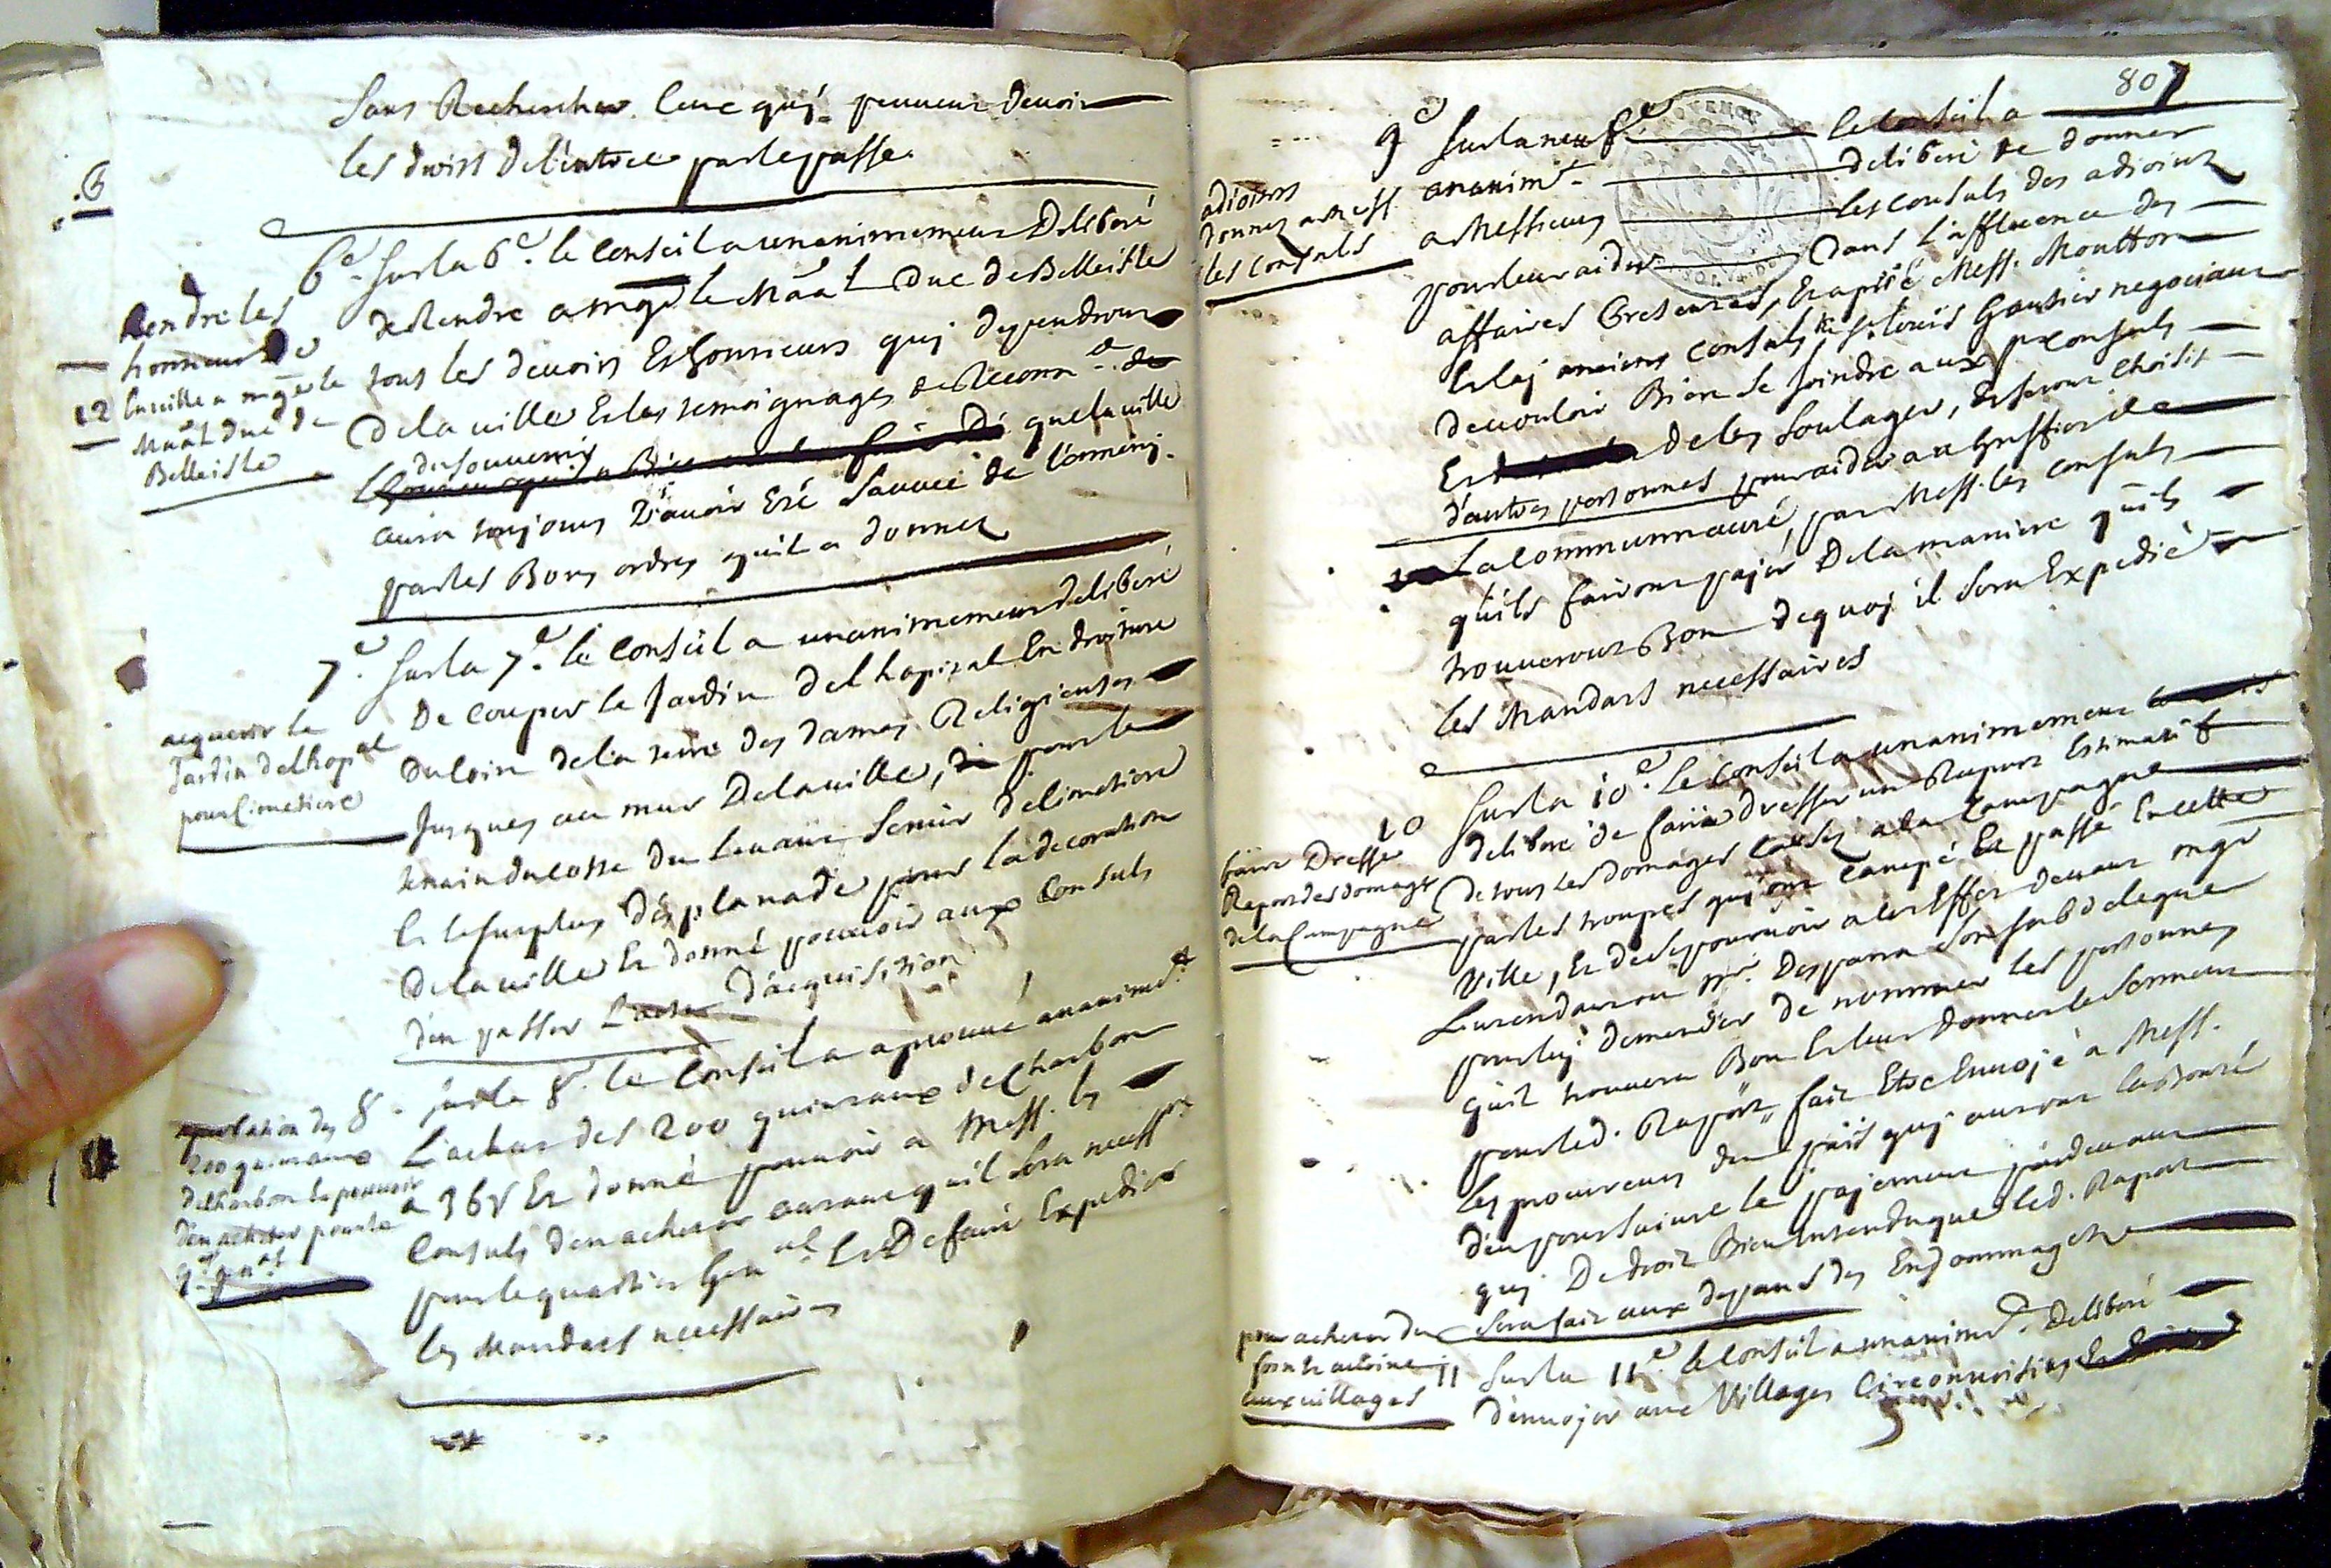 sans Rechercher ceux quj peuvent devoir
les droits de l'entree par le passe.
.6
6e. sur la 6e. le conseil a unanimement Deliberé
Rendre les
honneurs de
la ville a mgr le
Maal duc de
Belleisle
12
de Rendre a mgr le Maal Duc de Belleisle
tous les devoirs Et honneurs quj dependront
De la ville Et les temoignages de Reconn.ce de
du souvenir
que la ville
aura toujours D'avoir Eté sauvée de l'ennemj
par les Bons ordres qu'il a donnez
7e. sur la 7e. le conseil a unanimement deliberé
acquerir le
Jardin del hopal
pour Cimetiere
De couper le Jardin del hopital En droiture
Du Coin de la terre des dames Religieuses
Jusques au mur De la ville, pour le
terrain du cotté du Levant servir de Cimetiere
Et le surplus d'esplanade pour la decoration
De la ville Et donné pouvoir aux Consuls
d'en passer L'acte D'acquisition
8. sur la 8e. le Conseil a aprouvé unanimt.
aprobation des
200 quintaux
de Charbon Et pouvoir
d'en acheter pour le
qr. genal
L'achat des 200 quintaux de Charbon
a 36 s Et donné pouvoir a Mess. les
Consuls d'en acheter autant qu'il sera necessre
pour le quartier Genal. Et De faire Expedier
les Mandats necessaires
807
9e sur la neufe le Conseil a
adjoints
donnez a Mess
les Consuls
unanimt. deliberé de donner
a Messieurs les Consuls des adjoints
pour leur aider Dans L'affluence des
affaires presentes, Et a prié Mess. Moutton
Et laj anciens Consuls, Sr. Louis Gautier negociant
de vouloir Bien se joindre aux srs Consuls
Et de les soulager, Et seront choisis
d'autres personnes pour aider au Greffier de
La Communauté, par Mess. les Consuls
qu'ils fairont pajer De la maniere qu'ils
trouveront Bon De quoj il sera Expedié
les Mandats necessaires
10 sur la 10e. Le Conseil a unanimement
faire Dresser
Raport des domages
de la Campagne
deliberé de faire dresser un Raport Estimatif
De tous les domages causez a la Campagne
par les troupes quj ont Campé Et passé En cette
ville, Et de se pourvoir a cet Effet Devant mgr
L'intendant ou Mr. Desparra son subdelegué
pour luj demander de nommer les personnes
qu'il trouvera Bon Et leur donner le serment
pour led. Raport fait Etre Envojé a Mess.
les procureurs du païs quj auront la Bonté
d'en poursuivre le pajement pardevant
quj De droit Bien Entendu que led. Raport
sera fait aux depans des Endommagés
pour acheter du
foin Et avoine
aux villages
11 sur la 11e. le Conseil a unanimt. Deliberé
d'envojer aux Villages Circonvoisins